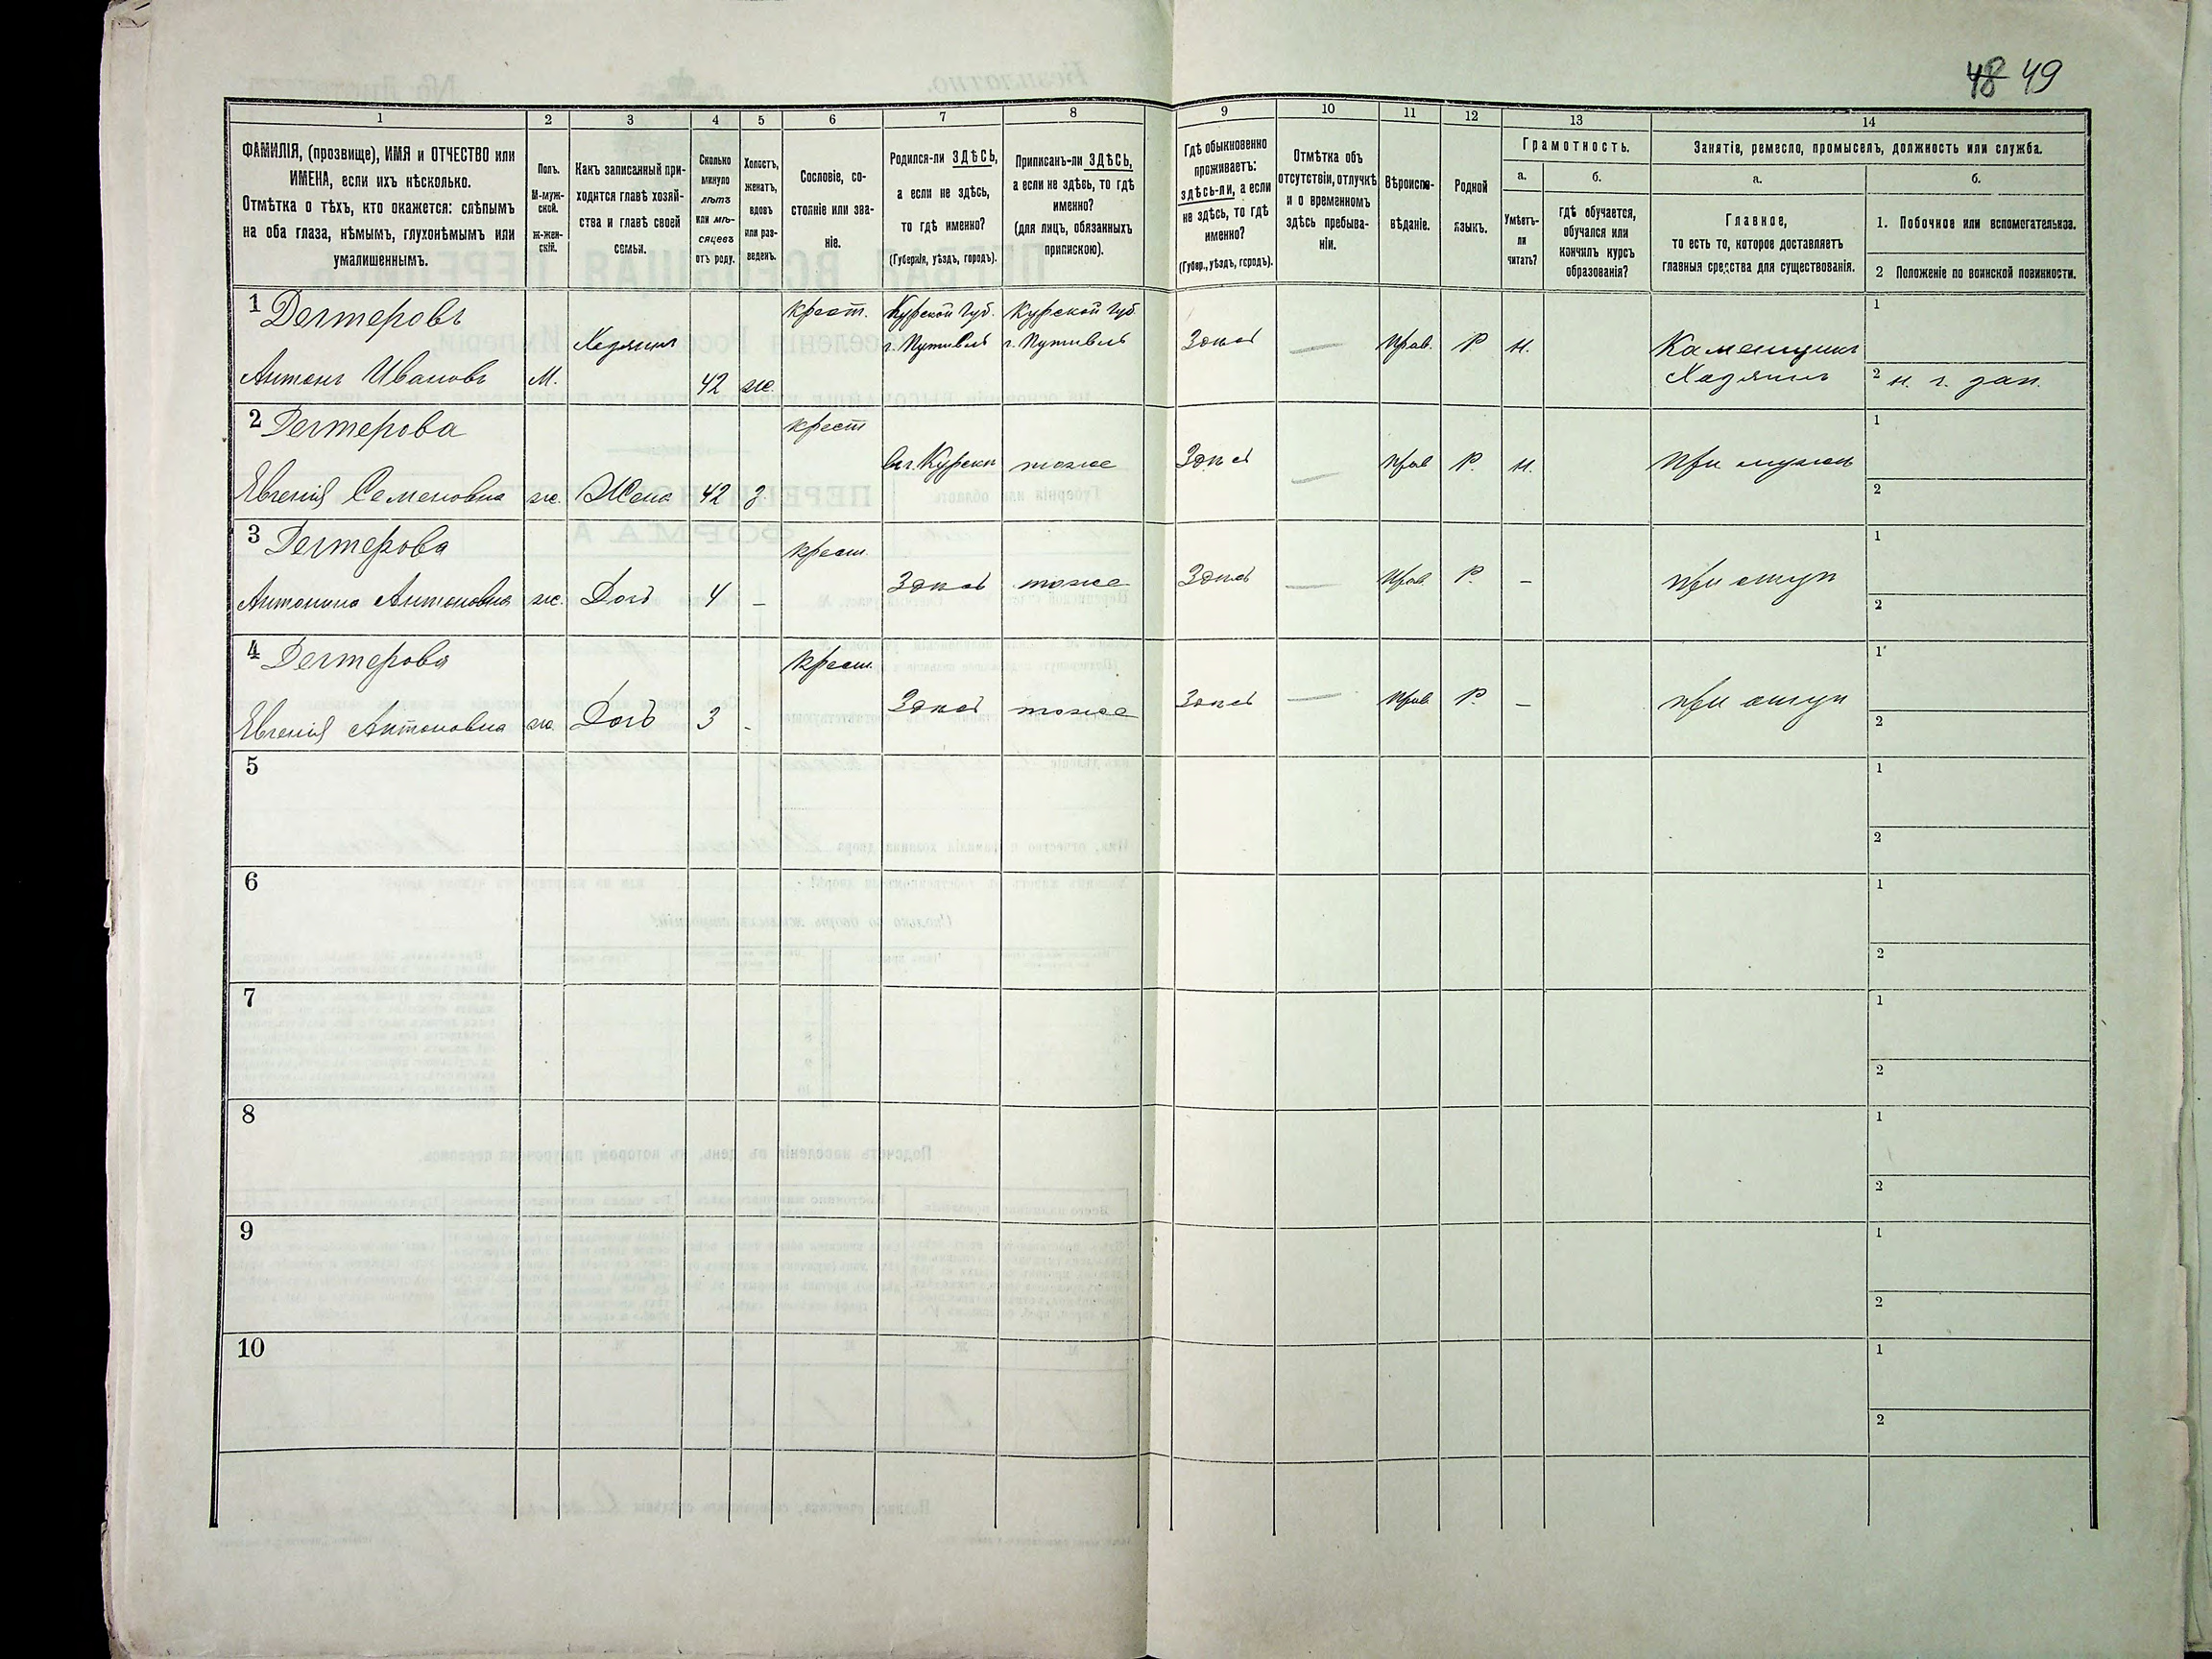 48 49
1
2
3
4
5
6
7
8
9
10
11
12
13
14
ФАМИЛІЯ, (прозвище), ИМЯ и ОТЧЕСТВО или
ИМЕНА, если ихъ нѣсколько.
Отмѣтка о тѣхъ, кто окажется: слѣпымъ
на оба глаза, нѣмымъ, глухонѣмымъ или
умалишеннымъ.
Полъ.
М-муж-
ской.
ж-жен-
скій.
Какъ записанный при-
ходится главѣ хозяй-
ства и главѣ своей
семьи.
Сколько
минуло
лѣтъ
или мѣ-
сяцевъ
отъ роду.
Холостъ,
женатъ,
вдовъ
или раз-
веденъ.
Сословіе, со-
стояніе или зва-
ніе.
Родился-ли ЗДѢСЬ,
а если не здѣсь,
то гдѣ именно?
(Губернія, уѣздъ, городъ).
Приписанъ-ли ЗДѢСЬ,
а если не здѣсь, то гдѣ
именно?
(для лицъ, обязанныхъ
припискою).
Гдѣ обыкновенно
проживаетъ:
здѣсь-ли, а если
не здѣсь, то гдѣ
именно?
(Губер., уѣздъ, городъ).
Отмѣтка объ
отсутствіи, отлучкѣ
и о временномъ
здѣсь пребыва-
ніи.
Вѣроиспо-
вѣданіе.
Родной
языкъ.
Грамотность.
а.
Умѣетъ-
ли
читать?
б.
гдѣ обучается,
обучался или
кончилъ курсъ
образованія?
Занятіе, ремесло, промыселъ, должность или служба.
а.
Главное,
то есть то, которое доставляетъ
главныя средства для существованія.
б.
1. Побочное или вспомогательное.
2 Положеніе по воинской повинности.
1 Дегтеровъ
Антонъ Ивановъ
М.
Хозяинъ
42
ж.
крест.
Курской губ.
г. Путивль
Курской губ.
г. Путивль
Здѣсь
—
Прав.
Р
н.
Каменщикъ
Хозяинъ
1
2 н. г. зап.
2 Дегтерова
Евгенія Семеновна
ж.
Жена
42
З.
крест
въ г. Курскѣ
тоже
Здѣсь
—
Прав
Р.
н.
При мужѣ
1
2
3 Дегтерова
Антонина Антоновна
ж.
Дочь
4
–
крест.
Здѣсь
тоже
Здѣсь
—
Прав
Р.
–
при отцѣ
1
2
4 Дегтерова
Евгенія Антоновна
ж.
Дочь
3
-
крест.
Здѣсь
тоже
Здѣсь
—
Прав
Р.
–
при отцѣ
1
2
5
1
2
6
1
2
7
1
2
8
1
2
9
1
2
10
1
2